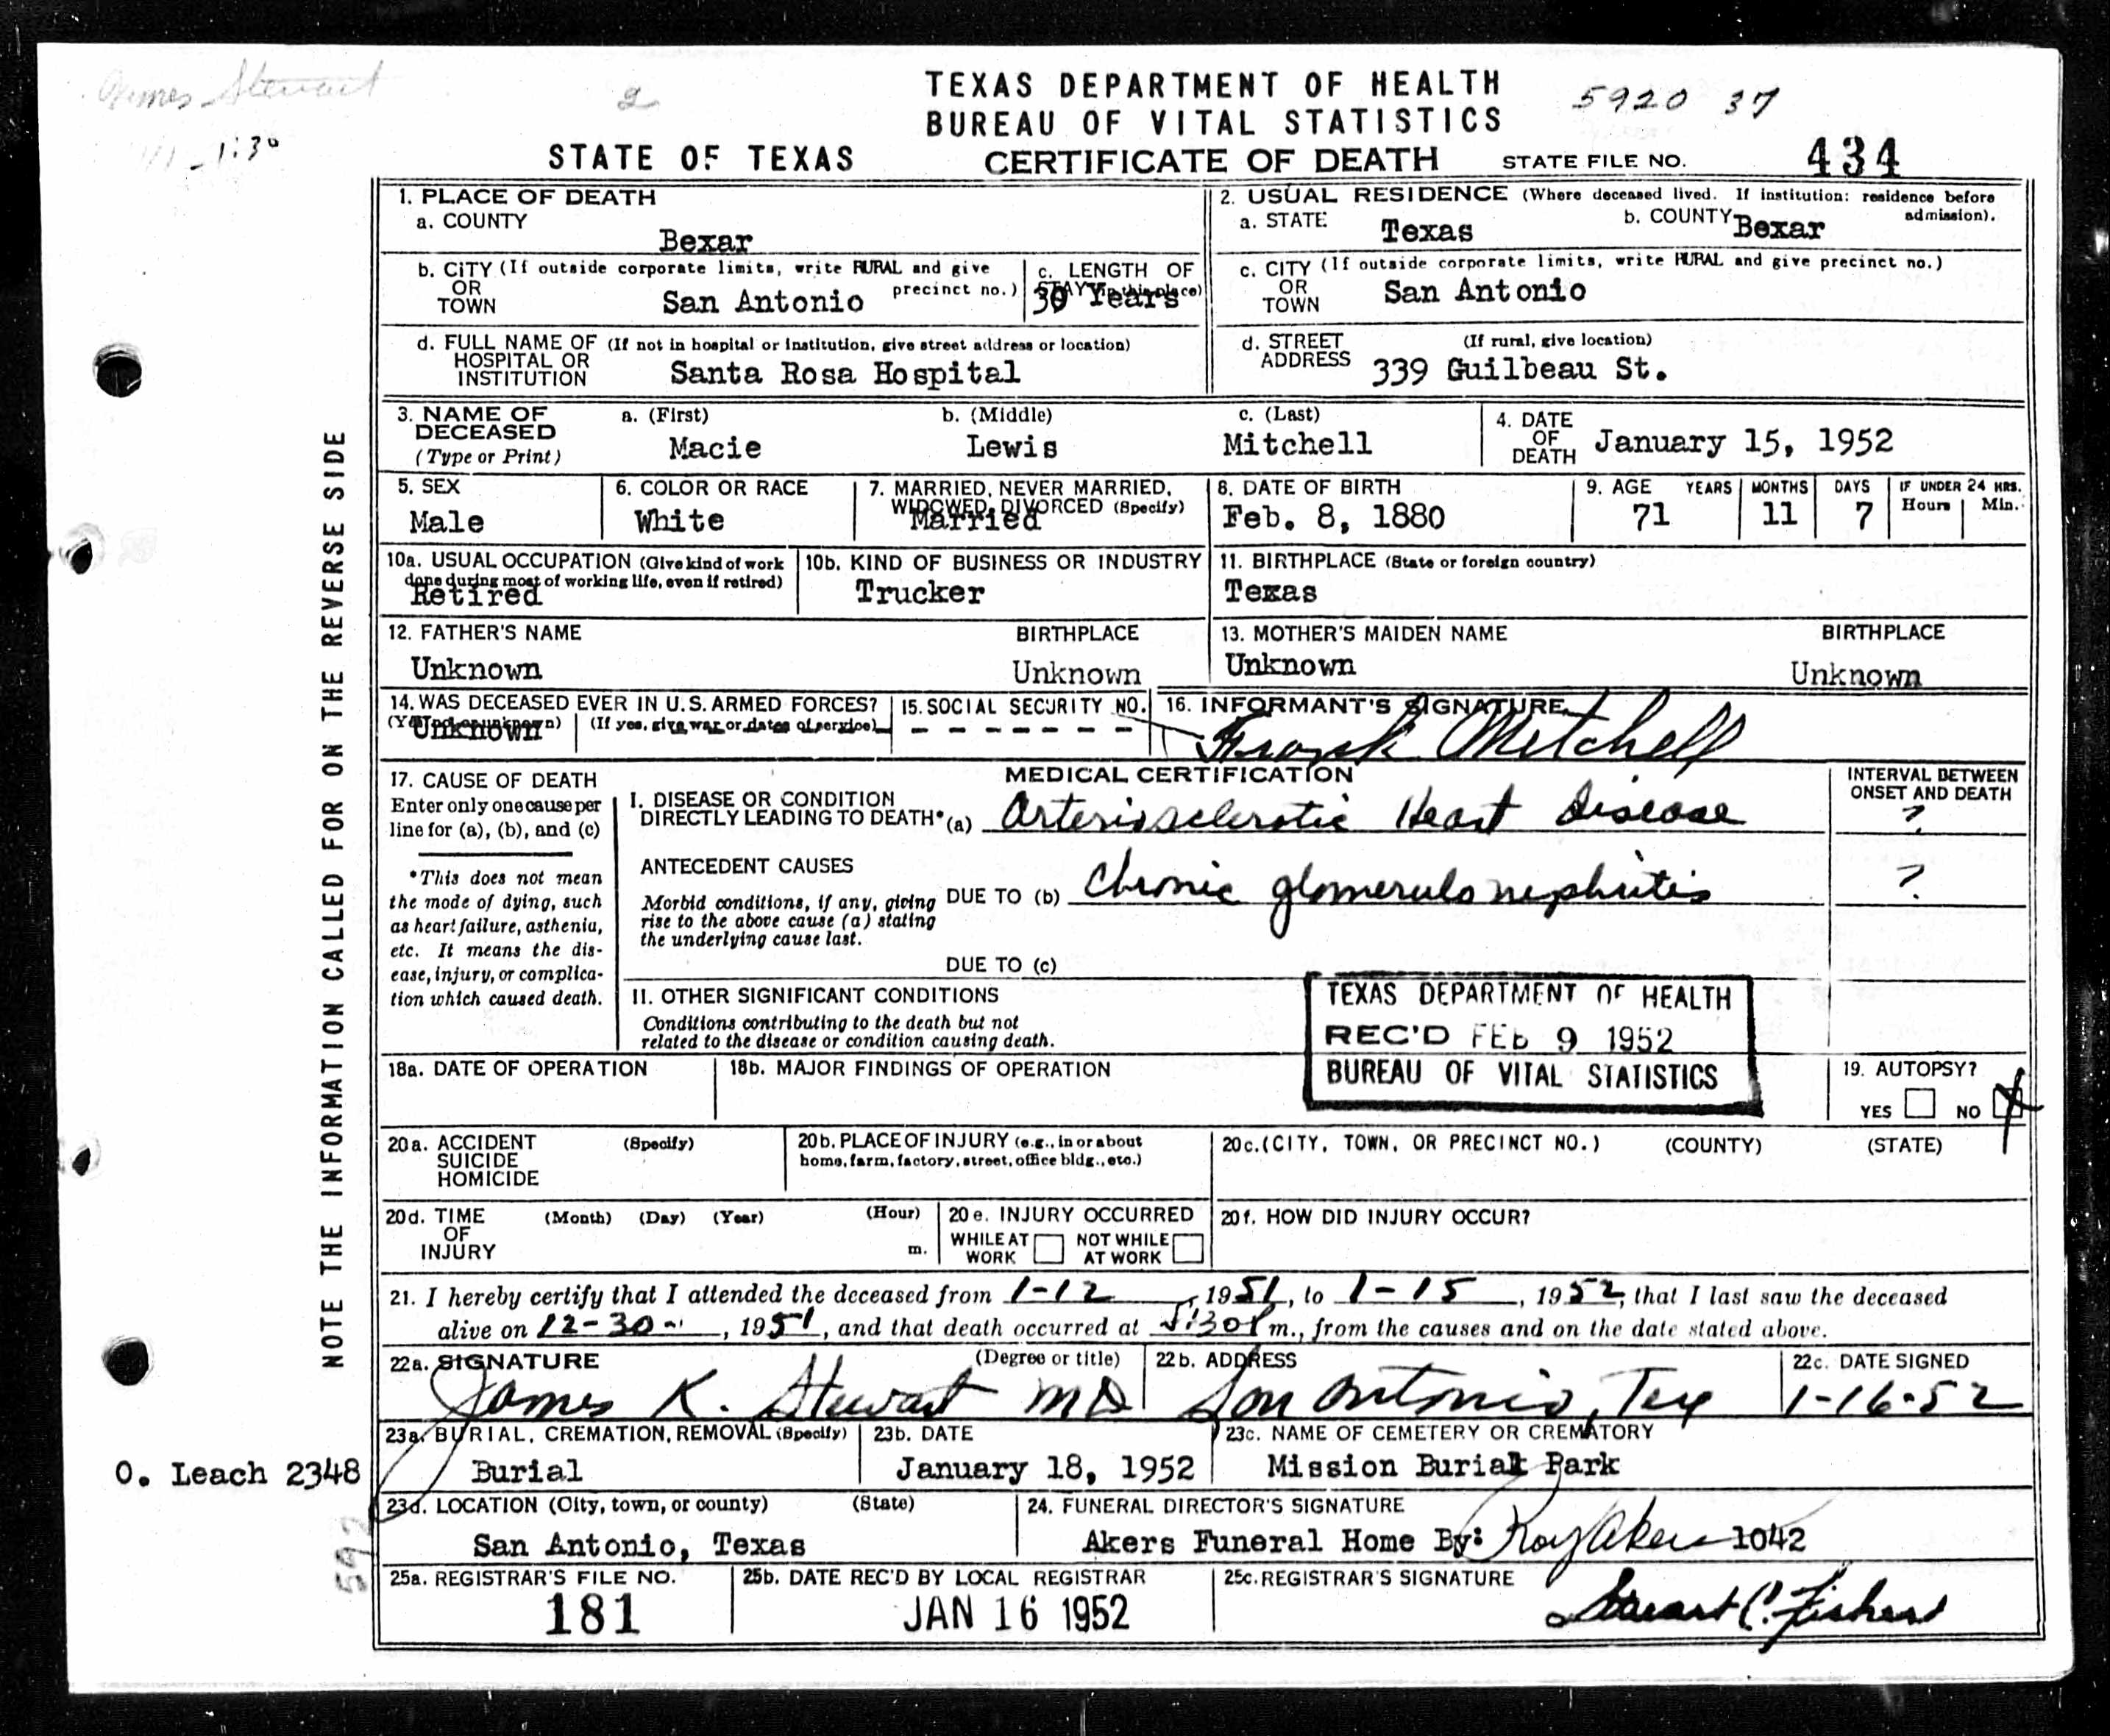 James Stewart
2
1:30
TEXAS DEPARTMENT OF HEALTH
BUREAU OF VITAL STATISTICS
5920 37
STATE OF TEXAS CERTIFICATE OF DEATH STATE FILE NO. 434
NOTE THE INFORMATION CALLED FOR ON THE REVERSE SIDE
1. PLACE OF DEATH
a. COUNTY
Bexar
2. USUAL RESIDENCE (Where deceased lived. If institution: residence before admission).
a. STATE Texas b. COUNTY Bexar
b. CITY (If outside corporate limits, write RURAL and give precinct no.)
OR
TOWN San Antonio
c. LENGTH OF
STAY (in this place)
30 Years
c. CITY (If outside corporate limits, write RURAL and give precinct no.)
OR
TOWN San Antonio
d. FULL NAME OF (If not in hospital or institution, give street address or location)
HOSPITAL OR
INSTITUTION Santa Rosa Hospital
d. STREET (If rural, give location)
ADDRESS 339 Guilbeau St.
3. NAME OF DECEASED (Type or Print)
a. (First) b. (Middle) c. (Last)
Macie Lewis Mitchell
4. DATE OF DEATH January 15, 1952
5. SEX
Male
6. COLOR OR RACE
White
7. MARRIED, NEVER MARRIED,
WIDOWED, DIVORCED (Specify)
Married
8. DATE OF BIRTH
Feb. 8, 1880
9. AGE YEARS MONTHS DAYS IF UNDER 24 HRS.
Hours Min.
71 11 7
10a. USUAL OCCUPATION (Give kind of work
done during most of working life, even if retired)
Retired
10b. KIND OF BUSINESS OR INDUSTRY
Trucker
11. BIRTHPLACE (State or foreign country)
Texas
12. FATHER'S NAME BIRTHPLACE
Unknown Unknown
13. MOTHER'S MAIDEN NAME BIRTHPLACE
Unknown Unknown
14. WAS DECEASED EVER IN U.S. ARMED FORCES?
(Yes, no, or unknown) (If yes, give war or dates of service)
Unknown
15. SOCIAL SECURITY NO.
- - - - - - -
16. INFORMANT'S SIGNATURE
Frank Mitchell
17. CAUSE OF DEATH
Enter only one cause per
line for (a), (b), and (c)
*This does not mean
the mode of dying, such
as heart failure, asthenia,
etc. It means the dis-
ease, injury, or complica-
tion which caused death.
MEDICAL CERTIFICATION
INTERVAL BETWEEN
ONSET AND DEATH
I. DISEASE OR CONDITION
DIRECTLY LEADING TO DEATH* (a) Arteriosclerotic Heart Disease ?
ANTECEDENT CAUSES
Morbid conditions, if any, giving
rise to the above cause (a) stating
the underlying cause last.
DUE TO (b) Chronic glomerulo nephritis ?
DUE TO (c)
II. OTHER SIGNIFICANT CONDITIONS
Conditions contributing to the death but not
related to the disease or condition causing death.
TEXAS DEPARTMENT OF HEALTH
REC'D FEB 9 1952
BUREAU OF VITAL STATISTICS
18a. DATE OF OPERATION
18b. MAJOR FINDINGS OF OPERATION
19. AUTOPSY?
YES NO X
20a. ACCIDENT (Specify)
SUICIDE
HOMICIDE
20b. PLACE OF INJURY (e.g., in or about
home, farm, factory, street, office bldg., etc.)
20c. (CITY, TOWN, OR PRECINCT NO.) (COUNTY) (STATE)
20d. TIME (Month) (Day) (Year) (Hour)
OF
INJURY m.
20e. INJURY OCCURRED
WHILE AT WORK NOT WHILE AT WORK
20f. HOW DID INJURY OCCUR?
21. I hereby certify that I attended the deceased from 1-12, 1951, to 1-15, 1952, that I last saw the deceased
alive on 12-30-, 1951, and that death occurred at 5:30P m., from the causes and on the date stated above.
22a. SIGNATURE (Degree or title)
James K. Stewart MD
22b. ADDRESS
San Antonio, Tex
22c. DATE SIGNED
1-16-52
23a. BURIAL, CREMATION, REMOVAL (Specify)
Burial
23b. DATE
January 18, 1952
23c. NAME OF CEMETERY OR CREMATORY
Mission Burial Park
O. Leach 2348
23d. LOCATION (City, town, or county) (State)
San Antonio, Texas
24. FUNERAL DIRECTOR'S SIGNATURE
Akers Funeral Home By: Roy Akers 1042
592
25a. REGISTRAR'S FILE NO.
181
25b. DATE REC'D BY LOCAL REGISTRAR
JAN 16 1952
25c. REGISTRAR'S SIGNATURE
Stuart C. Fisher